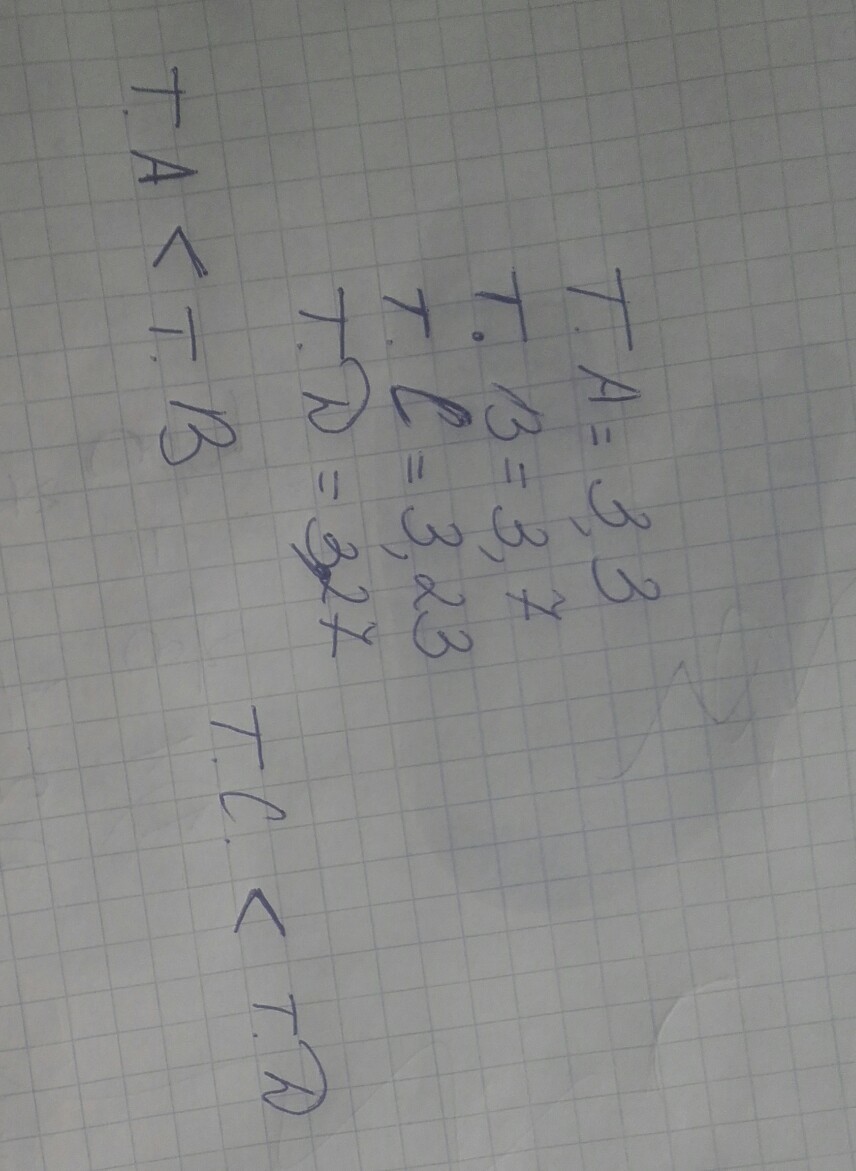 Т. А = 3,3
Т. В = 3,7
Т. С = 3,23
Т. D = 3,27
Т. А < Т. В
Т. С. < Т. D